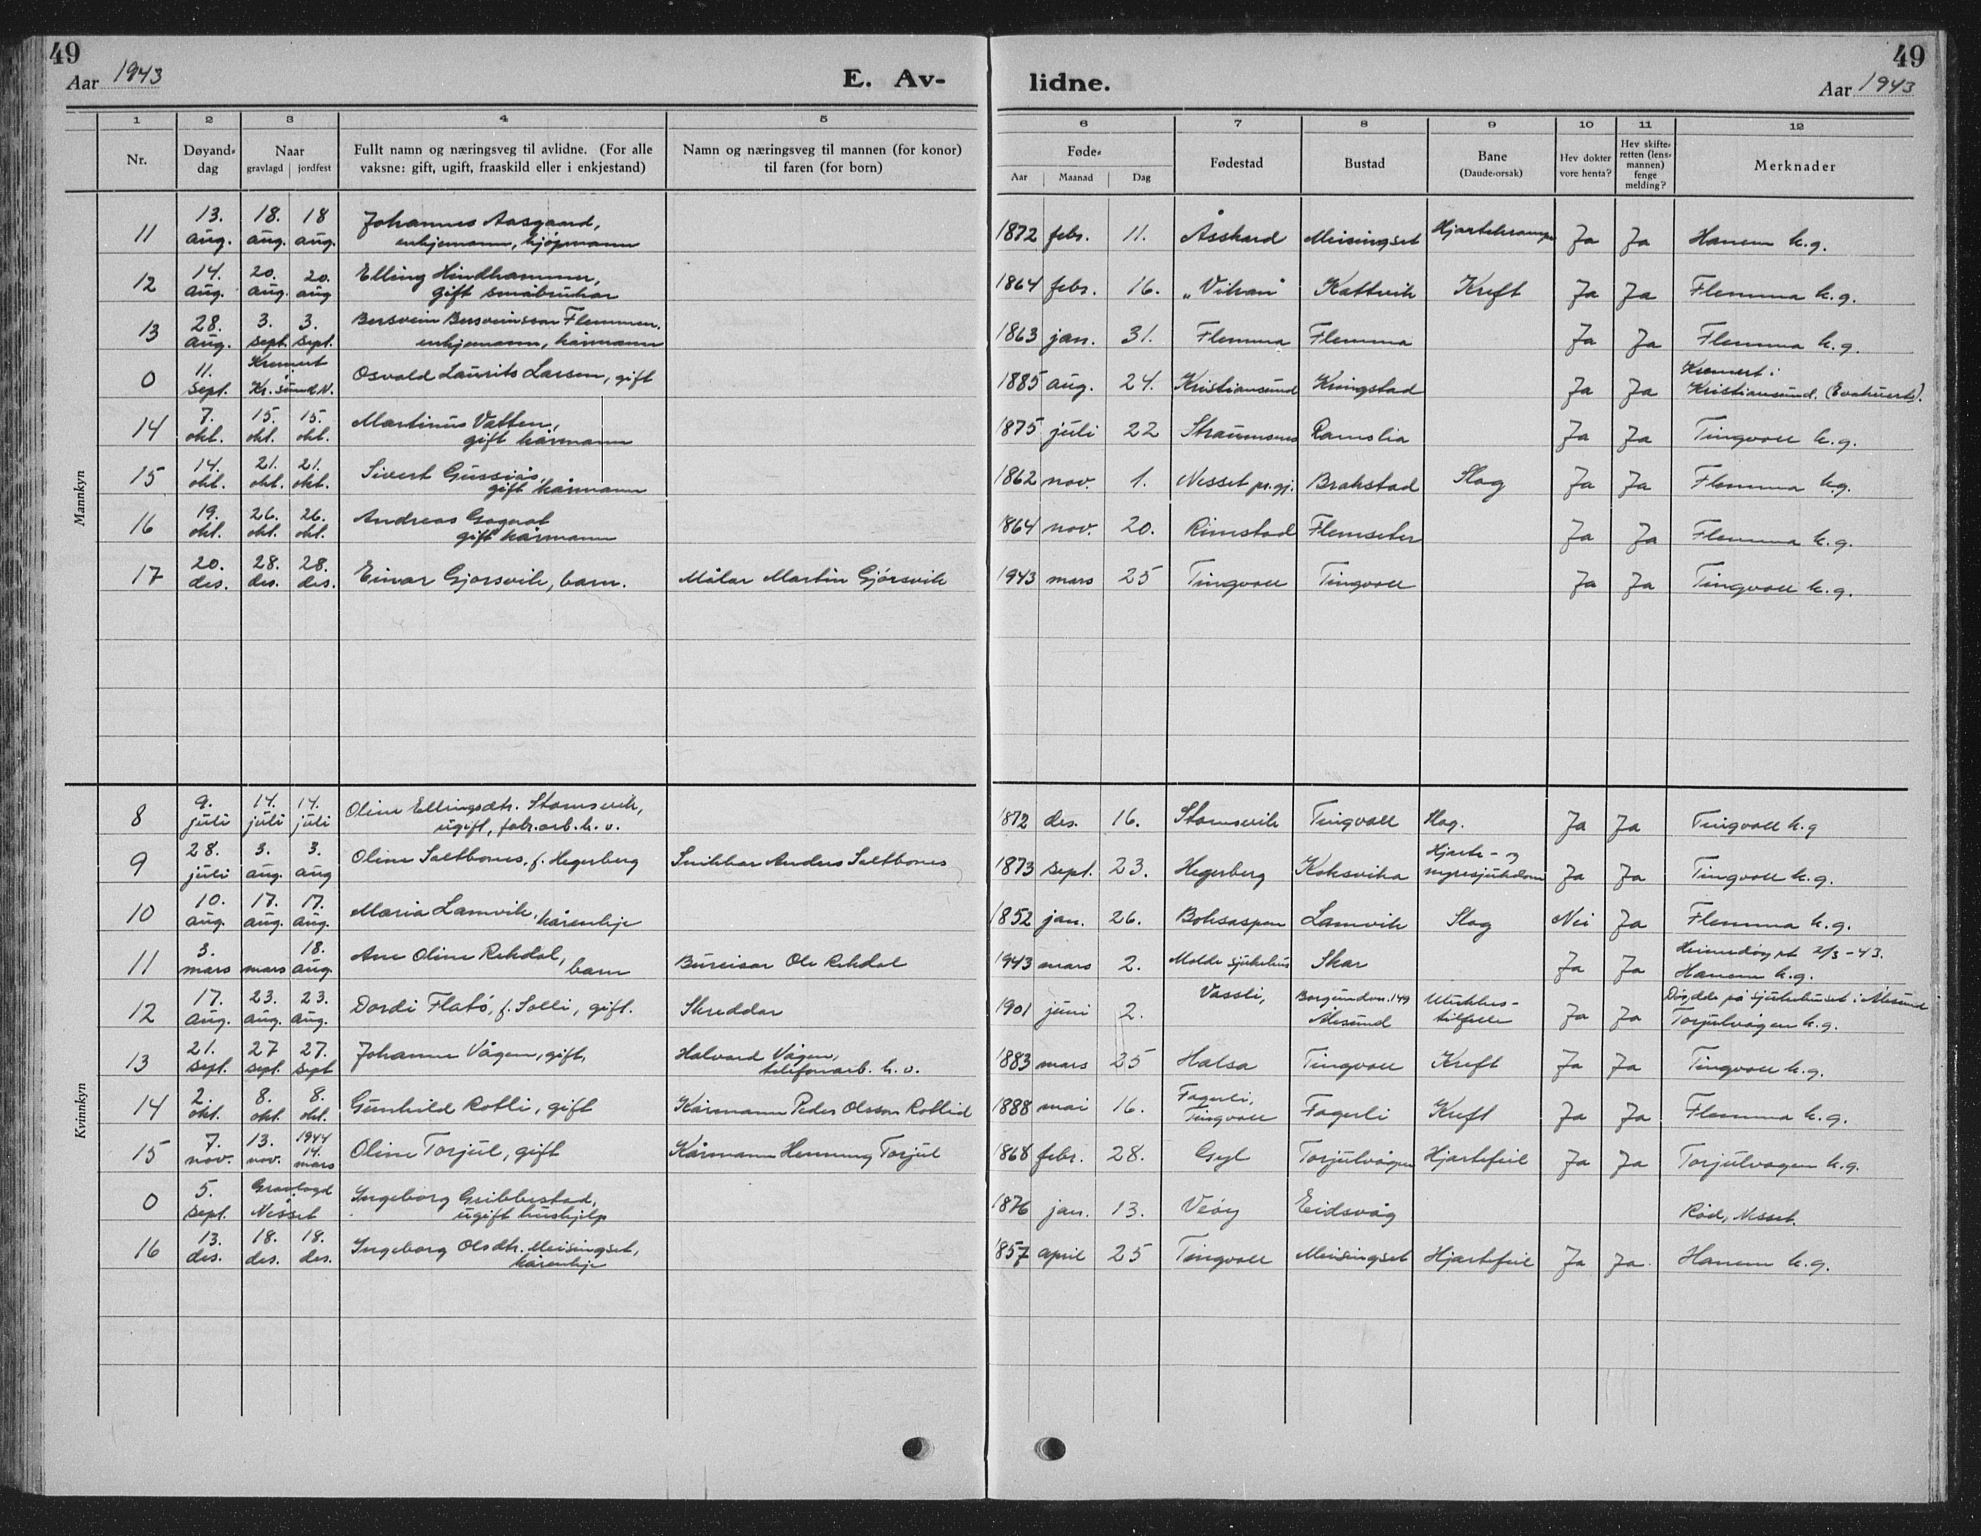 49
49
Aar 1943
E. Av- lidne.
Aar 1943
1 2 3 4 5 6 7 8 9 10 11 12
Nr.
Døyand-
dag
Naar
gravlagd jordfest
Fullt namn og næringsveg til avlidne. (For alle
vaksne: gift, ugift, fraaskild eller i enkjestand)
Namn og næringsveg til mannen (for konor)
til faren (for born)
Føde-
Aar Maanad Dag
Fødestad
Bustad
Bane
(Daude-orsak)
Hev dokter
vore henta?
Hev skifte-
retten (lens-
mannen)
fenge
melding?
Merknader
Mannkyn
11 13. aug. 18. aug. 18 aug. Johannes Aasgaard,
enkjemann, kjøpmann
1872 febr. 11. Åsskard Meisingset Hjartekrampe Ja Ja Hanem k.g.
12 14. aug. 20. aug. 20. aug Elling Hindhammer,
gift småbrukar
1864 febr. 16. Kattvik Kreft Ja Ja Flemma k.g.
13 28. aug. 3. sept. 3. sept. Bersvein Bersveinsson Flemmen.
enkjemann, kårmann
1863 jan. 31. Flemma Flemma Ja Ja Flemma k.g.
0 11. sept. Kremert
Kr.sund N. Osvald Laurits Larsen, gift
1885 aug. 24. Kristiansund Kringstad Ja Ja Kremert i
Kristiansund. (Evakuert).
14 7. okt. 15. okt. 15. okt. Martinus Vatten,
gift kårmann
1875 juli 22 Straumsnes Ramslia Ja Ja Tingvoll k.g.
15 14. okt. 21. okt. 21. okt. Sivert Gussiås,
gift kårmann
1862 nov. 1. Nesset pr.gj. Brakstad Slag Ja Ja Flemma k.g.
16 19. okt. 26. okt. 26. okt. Andreas
gift kårmann
1864 nov. 20. Rimstad Flemseter Ja Ja Flemma k.g.
17 20. des. 28. des. 28. des. Einar Gjørsvik, barn. Målar Martin Gjørsvik
1943 mars 25 Tingvoll Tingvoll Ja Ja Tingvoll k.g.
Kvinnkyn
8 9. juli 14. juli 14. juli Oline Ellingsdtr. Stamsvik,
ugift, fabr.arb. h.v.
1872 des. 16. Stamsvik Tingvoll Slag. Ja Ja Tingvoll k.g
9 28. juli 3. aug. 3. aug Oline Saltbones, f. Hegerberg Snikkar Anders Saltbones
1873 sept. 23. Hegerberg Koksvika Hjarte- og
nyresjukdom Ja Ja Tingvoll k.g.
10 10. aug 17. aug. 17. aug. Maria Lamvik, kårenkje
1852 jan. 26. Boksaspen Lamvik Slag Nei Ja Flemma k.g.
11 3. mars mars 18. aug. Ane Oline Rekdal,
barn Bureisar Ole Rekdal
1943 mars 2. Molde sjukehus Skar Ja Ja Heimedøypt 2/3-43.
Hanem k.g.
12 17. aug. 23. aug. 23. aug. Dordi Flatø, f. Solli, gift. Skreddar
1901 juni 2. Vassli, Borgundvn. 149
Ålesund Ulukkes-
tilfelle Ja Ja Døydde på sjukehuset i Ålesund
Torjulvågen k.g.
13 21. sept. 27 sept 27. sept Johanne Vågen, gift, Halvard Vågen,
telefonarb. h.v.
1883 mars 25 Halsa Tingvoll Kreft Ja Ja Tingvoll k.g.
14 2. okt. 8. okt. 8. okt. Gunhild Rotli, gift Kårmann Peder Olsson Rotlid
1888 mai 16. Fagerli,
Tingvoll Fagerli Kreft Ja Ja Flemma k.g.
15 7. nov. 13. nov. 1944 14. mars Oline Torjul, gift Kårmann Henning Torjul
1868 febr. 28. Gyl Torjulvågen Hjartefeil Ja Ja Torjulvågen k.g.
0 5. sept. Gravlagd
Nesset Ingeborg Gribbestad,
ugift hushjelp
1876 jan. 13. Veøy Eidsvåg Rød, Nesset.
16 13. des. 18. des. 18. des. Ingeborg Olsdtr. Meisingset,
kårenkje
1857 april 25 Tingvoll Meisingset Hjartefeil Ja Ja Hanem k.g.